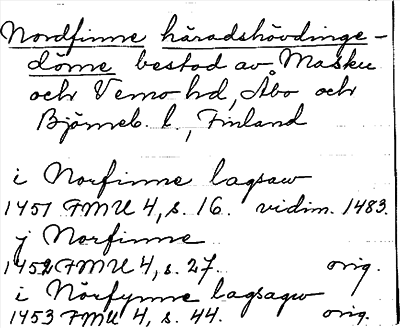 Nordfinne häradshövdinge-
döme bestod av Masku
och Vemo hd, Åbo och
Björneb. l., Finland
i Norfinne lagsaw
1451 FMU 4, s. 16. vidim. 1483.
j Norfinne
1452 FMU 4, s. 27. orig.
i Nörfynne lagsagw
1453 FMU 4, s. 44. orig.